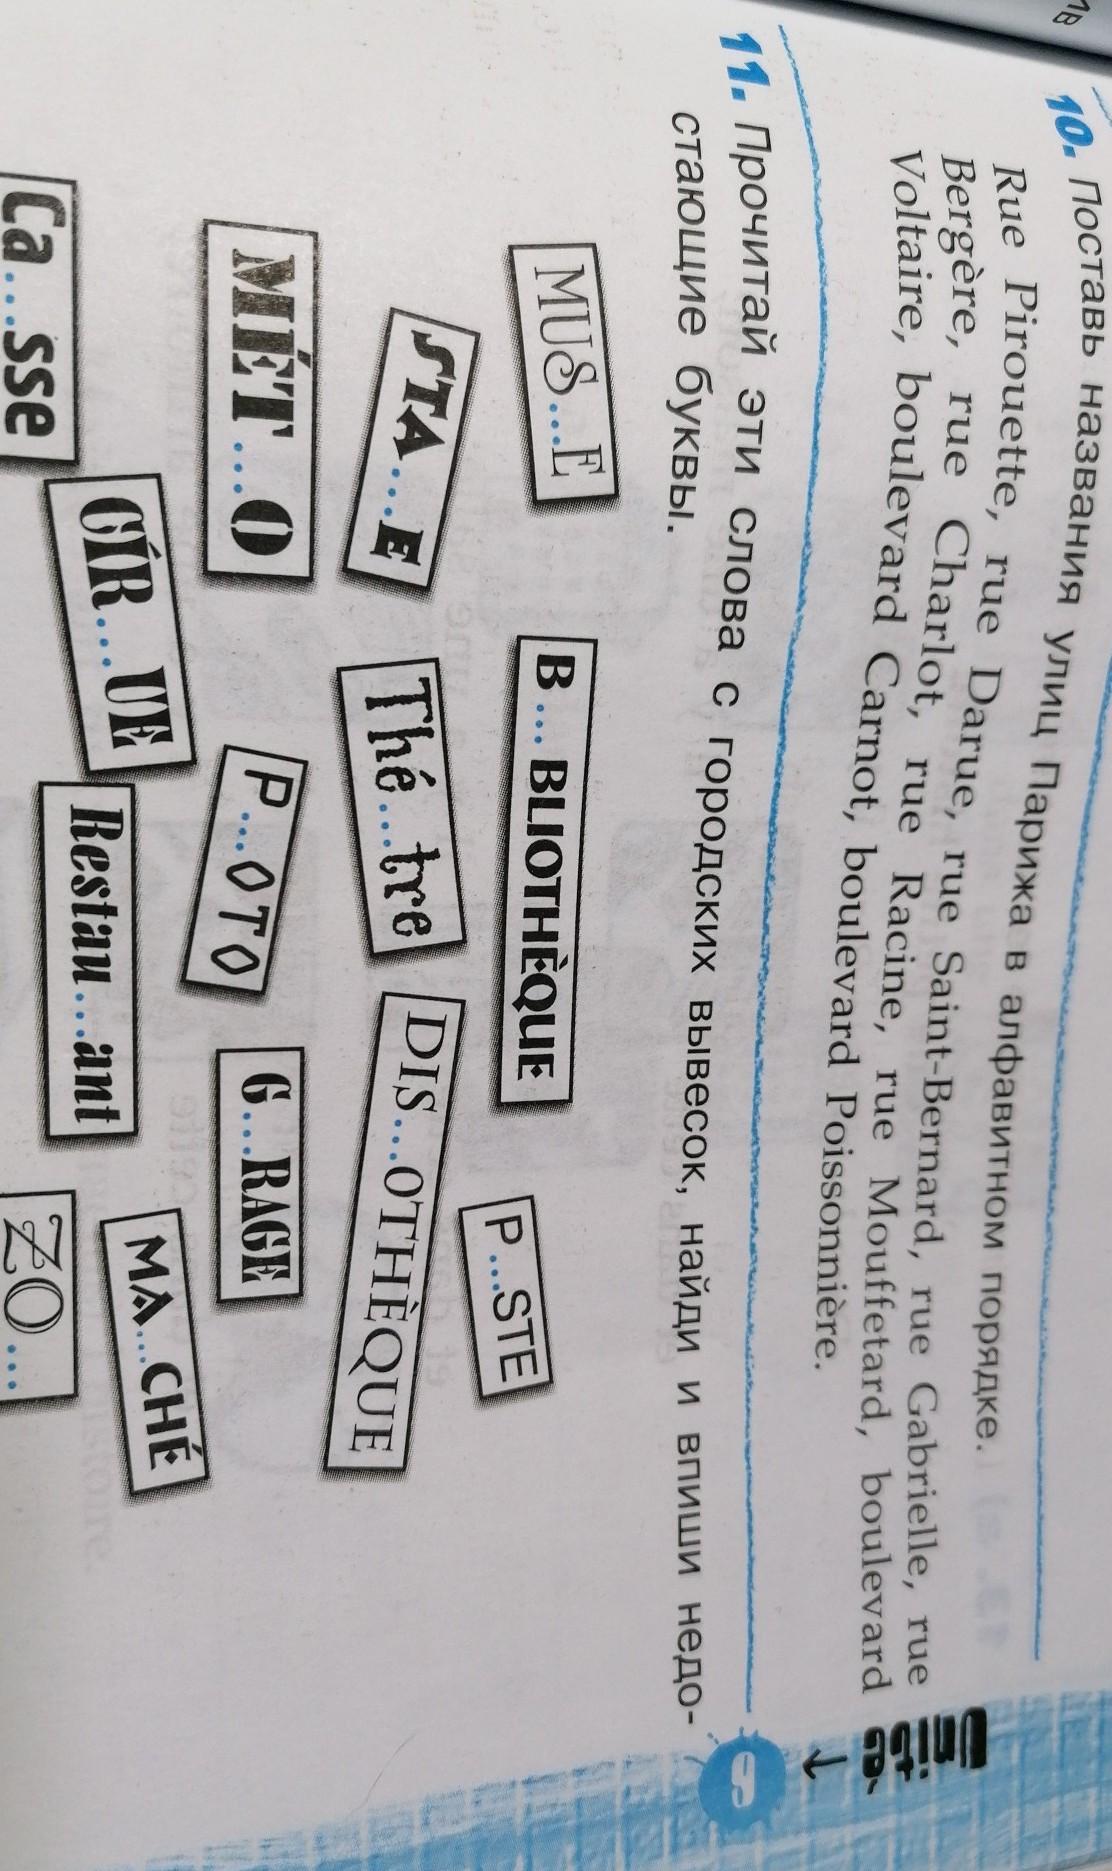 10. Поставь названия улиц Парижа в алфавитном порядке.
Rue Pirouette, rue Darue, rue Saint-Bernard, rue Gabrielle, rue
Bergère, rue Charlot, rue Racine, rue Mouffetard, boulevard
Voltaire, boulevard Carnot, boulevard Poissonnière.
11. Прочитай эти слова с городских вывесок, найди и впиши недо-
стающие буквы.
MUS...E
B... BLIOTHÈQUE
P ...STE
STA...E
Thé...tre
DIS...OTHÈQUE
MÉT...O
P...OTO
G...RAGE
CÍR...UE
Restau...ant
MA...CHÉ
Ca...sse
ZO...